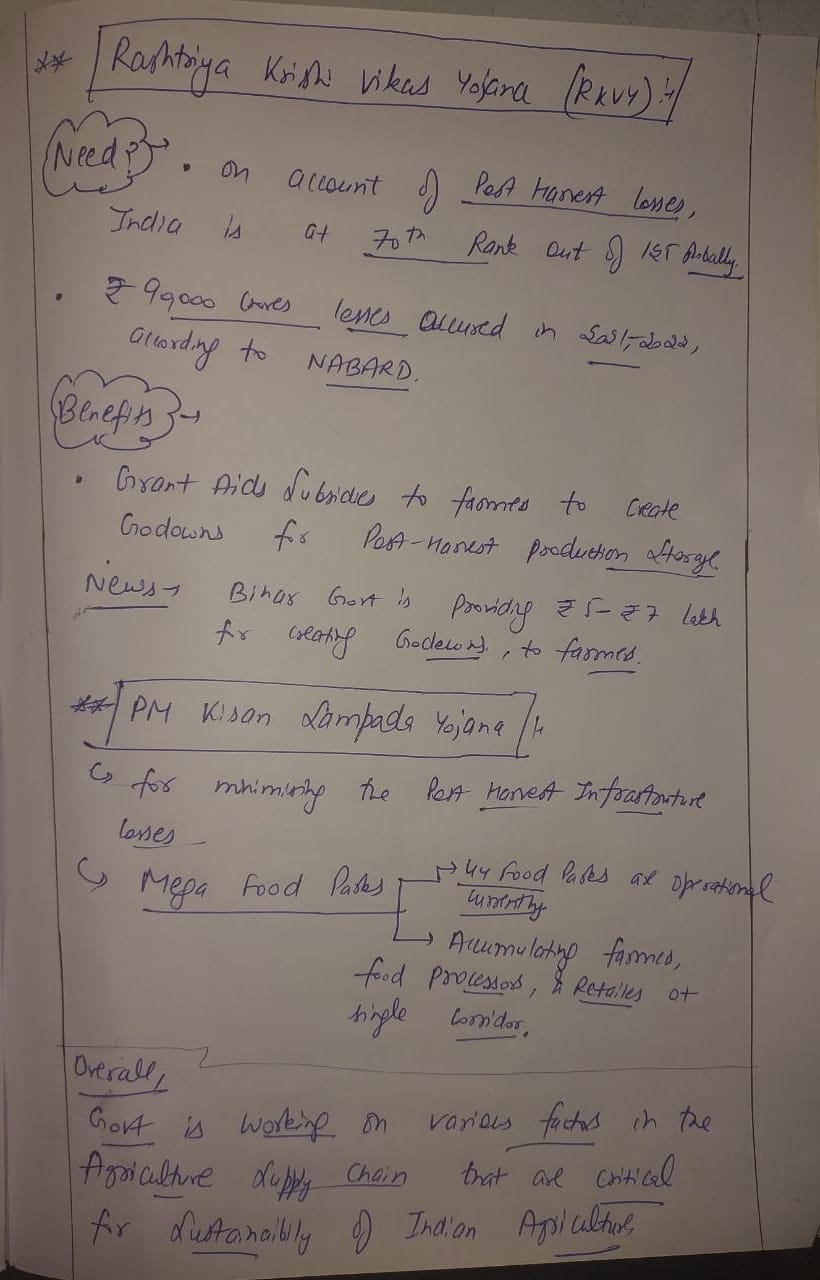 ** Rashtriya Krishi Vikas Yojana (RKVY) :-
Need? → • on account of Post Harvest losses,
India is at 70th Rank out of 125 Globally.
• ₹ 99000 Crores losses occured in 2021-2022,
according to NABARD.
Benefits →
• Grant Aids Subsidies to farmers to Create
Godowns for Post-Harvest production Storage
News → Bihar Govt is Providing ₹ 5 - ₹ 7 lakh
for creating Godowns, to farmers.
** PM Kisan Sampada Yojana :-
↳ for minimising the Post Harvest Infrastructure
losses
↳ Mega Food Parks → 44 Food Parks are operational
currently
→ Accumulating farmers,
food processors, & Retailes at
single corridor.
Overall,
Govt is working on various factors in the
Agriculture Supply Chain that are critical
for Sustainaibily of Indian Agriculture